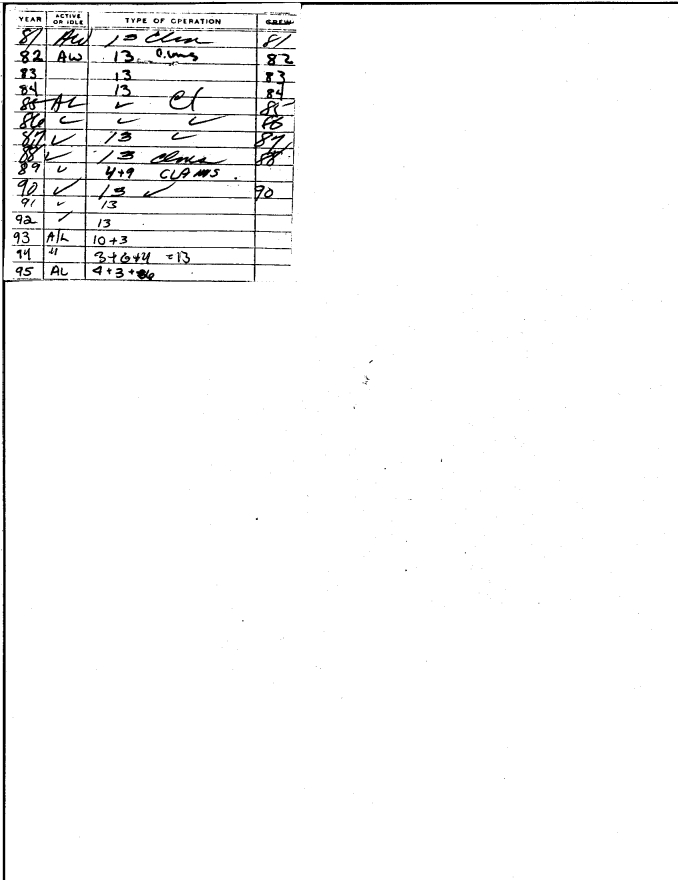 YEAR ACTIVE OR IDLE TYPE OF OPERATION CREW
81 AW 13 Clm 81
82 AW 13 82
83 13 83
84 13 84
85 AL ✓ Cl 85
86 ✓ ✓ ✓ 86
87 ✓ 13 ✓ 87
88 ✓ 13 clms 88
89 ✓ 4+9 CLAIMS.
90 ✓ 13 ✓ 90
91 ✓ 13
92 ✓ 13
93 A/L 10+3
94 " 3+6+4 =13
95 AL 4+3+6